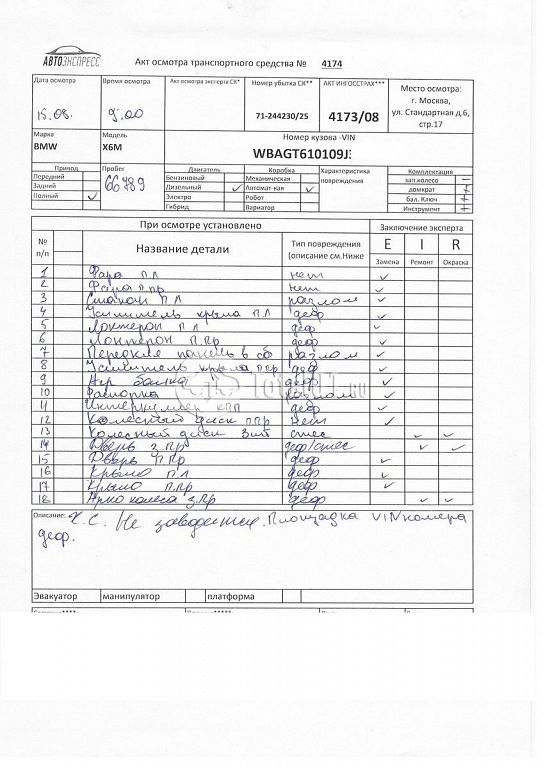 АВТОЭКСПРЕСС
Акт осмотра транспортного средства № 4174
Дата осмотра Время осмотра Акт осмотра эксперта СК* Номер убытка СК** АКТ ИНГОССТРАХ*** Место осмотра:
15.08. 9:00 71-244230/25 4173/08 г. Москва,
ул. Стандартная д.6,
стр.17
Марка Модель Номер кузова -VIN
BMW X6M WBAGT610109J
Привод Пробег Двигатель Коробка Характеристика повреждения Комплектация
Передний 66789 Бензиновый Механическая зап.колесо
Задний Дизельный ✓ Автомат-кая ✓ домкрат
Полный ✓ Электро Робот бал. Ключ
Гибрид Вариатор Инструмент
При осмотре установлено Заключение эксперта
№ п/п Название детали Тип повреждения (описание см.Ниже E I R
Замена Ремонт Окраска
1 Фара п.л нет ✓
2 Фара п.пр нет ✓
3 Стакан п.л разлом ✓
4 Усилитель крыла п.л деф ✓
5 Лонжерон п.л деф ✓
6 Лонжерон п.пр деф ✓
7 Передняя панель в сб разлом ✓
8 Усилитель крыла п.пр деф ✓
9 балка деф ✓
10 Распорка разлом ✓
11 Интеркуллер КПП деф ✓
12 Колесный диск п.пр нет ✓
13 Колесный диск 3шт ✓ ✓
14 Дверь з.пр ✓ ✓
15 Дверь п.пр деф ✓
16 Крыло п.л деф ✓
17 Крыло п.пр деф ✓
18 Арка колеса з.пр деф ✓ ✓
Описание: Х.С. Не заводится. Площадка VIN номера
деф.
Эвакуатор манипулятор платформа